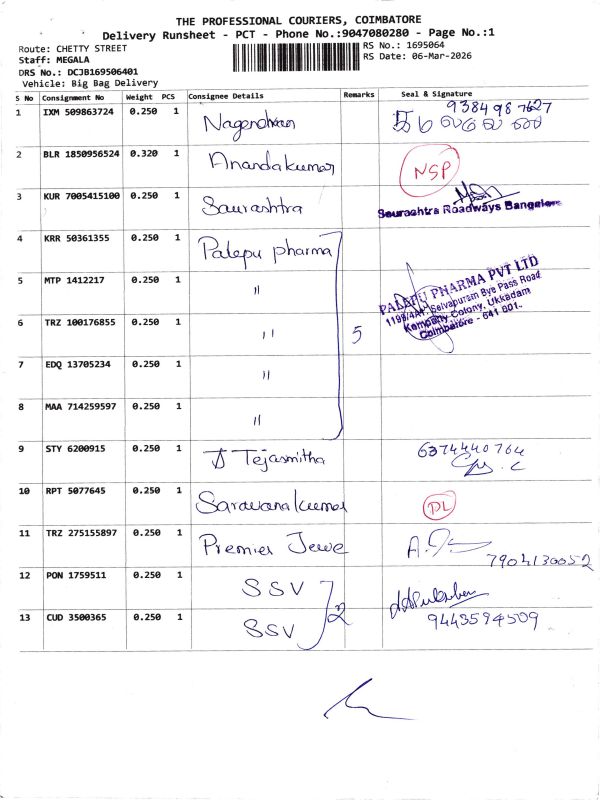 THE PROFESSIONAL COURIERS, COIMBATORE
Delivery Runsheet - PCT - Phone No.:9047080280 - Page No.:1
Route: CHETTY STREET
RS No.: 1695064
Staff: MEGALA
RS Date: 06-Mar-2026
DRS No.: DCJB169506401
Vehicle: Big Bag Delivery
S No Consignment No Weight PCS Consignee Details Remarks Seal & Signature
1 IXM 509863724 0.250 1 Nagendran 9384987627
2 BLR 1850956524 0.320 1 Anandakumar NSP
3 KUR 7005415100 0.250 1 Saurashtra Saurashtra Roadways Bangalore
4 KRR 50361355 0.250 1 Palepu pharma
5 MTP 1412217 0.250 1 "
6 TRZ 100176855 0.250 1 " 5
PALEPU PHARMA PVT LTD
1198/4A1, Selvapuram Bye Pass Road
Kempatty Colony, Ukkadam
Coimbatore - 641 001.
7 EDQ 13705234 0.250 1 "
8 MAA 714259597 0.250 1 "
9 STY 6200915 0.250 1 Tejasmitha 6374440764
10 RPT 5077645 0.250 1 Saravanakumar DL
11 TRZ 275155897 0.250 1 Premier Jewe 7904130052
12 PON 1759511 0.250 1 SSV 2
13 CUD 3500365 0.250 1 SSV 9443594509